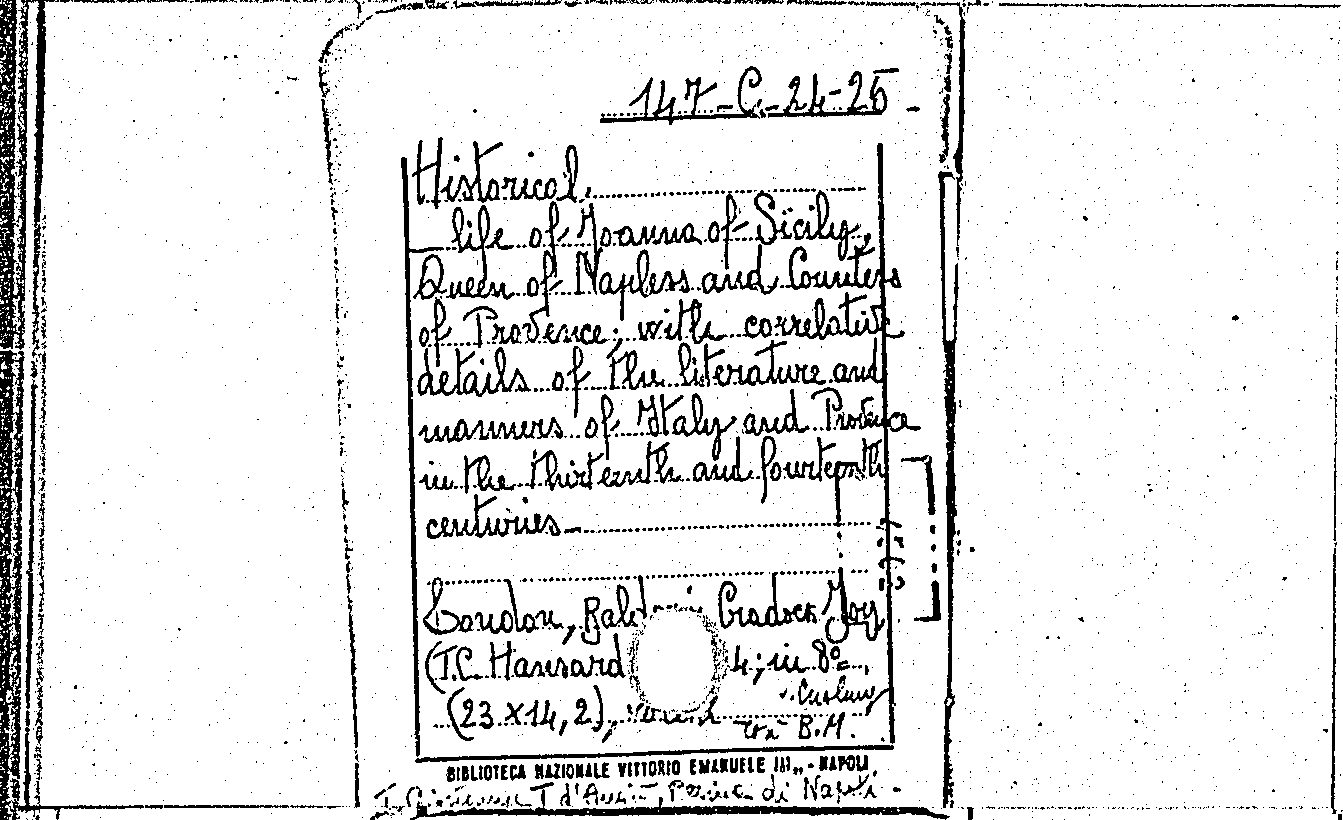 147-C-24-25
Historical
life of Joanna of Sicily,
Queen of Napless and Counters
of Provence; with correlative
details of the literature and
manners of Italy and Provence
in the thirteenth and fourteenth
centuries
London, Cradock Joy
(T.C. Hansard 4; in 8º
(23 x 14, 2),
B.M.
BIBLIOTECA NAZIONALE VITTORIO EMANUELE III„ - NAPOLI
di Napoli -